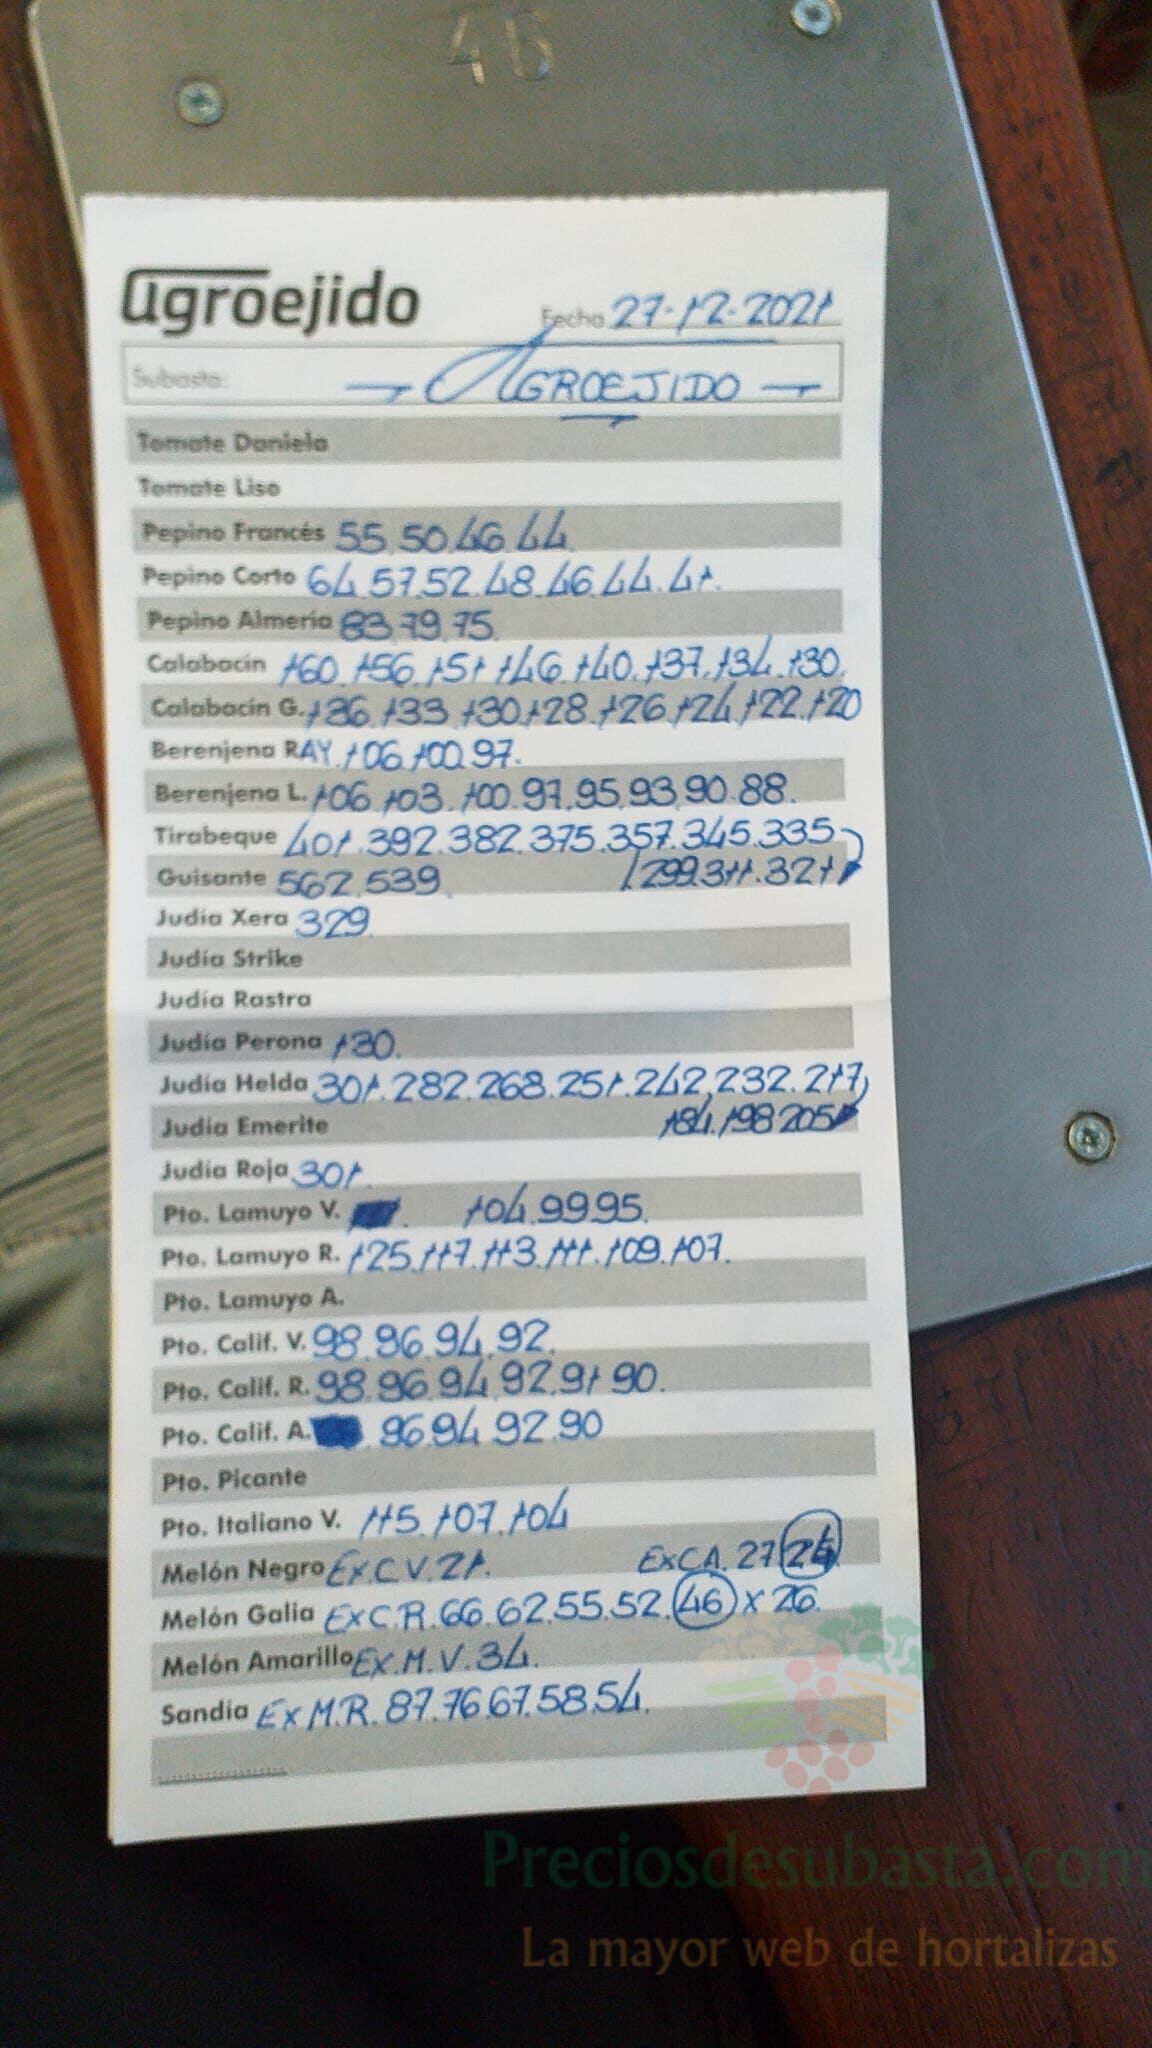 46
agroejido
Fecha 27-12-2021
Subasta: AGROEJIDO
Tomate Daniela
Tomate Liso
Pepino Francés 55.50.46.44
Pepino Corto 64.57.52.48.46.44.41.
Pepino Almería 83.79.75.
Calabacín 160.156.151.146.140.137.134.130.
Calabacín G. 136.133.130.128.126.124.122.120
Berenjena RAY. 106.100.97.
Berenjena L. 106.103.100.97.95.93.90.88.
Tirabeque 401.392.382.375.357.345.335
Guisante 562.539. 299.311.321
Judía Xera 329.
Judía Strike
Judía Rastra
Judía Perona 130.
Judía Helda 301.282.268.251.242.232.217
Judía Emerite 184.198.205
Judía Roja 301.
Pto. Lamuyo V. 104.99.95.
Pto. Lamuyo R. 125.117.113.111.109.107.
Pto. Lamuyo A.
Pto. Calif. V. 98.96.94.92.
Pto. Calif. R. 98.96.94.92.91.90.
Pto. Calif. A. 96.94.92.90
Pto. Picante
Pto. Italiano V. 115.107.104
Melón Negro Ex.C.V.21. ExCA.27
Melón Galia ExC.R.66.62.55.52.46 x 26.
Melón Amarillo Ex.M.V.34.
Sandía Ex M.R.87.76.67.58.54.
Preciosdesubasta.com
La mayor web de hortalizas